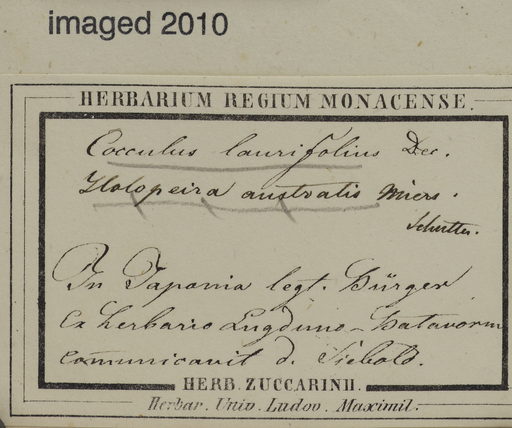 imaged 2010
HERBARIUM REGIUM MONACENSE.
Cocculus laurifolius Dec.
Holopeira australis Miers.
In Japonia legt. Bürger
Ex herbario Lugduno-Batavorum
communicavit d. Siebold.
HERB. ZUCCARINII.
Herbar. Univ. Ludov. Maximil.